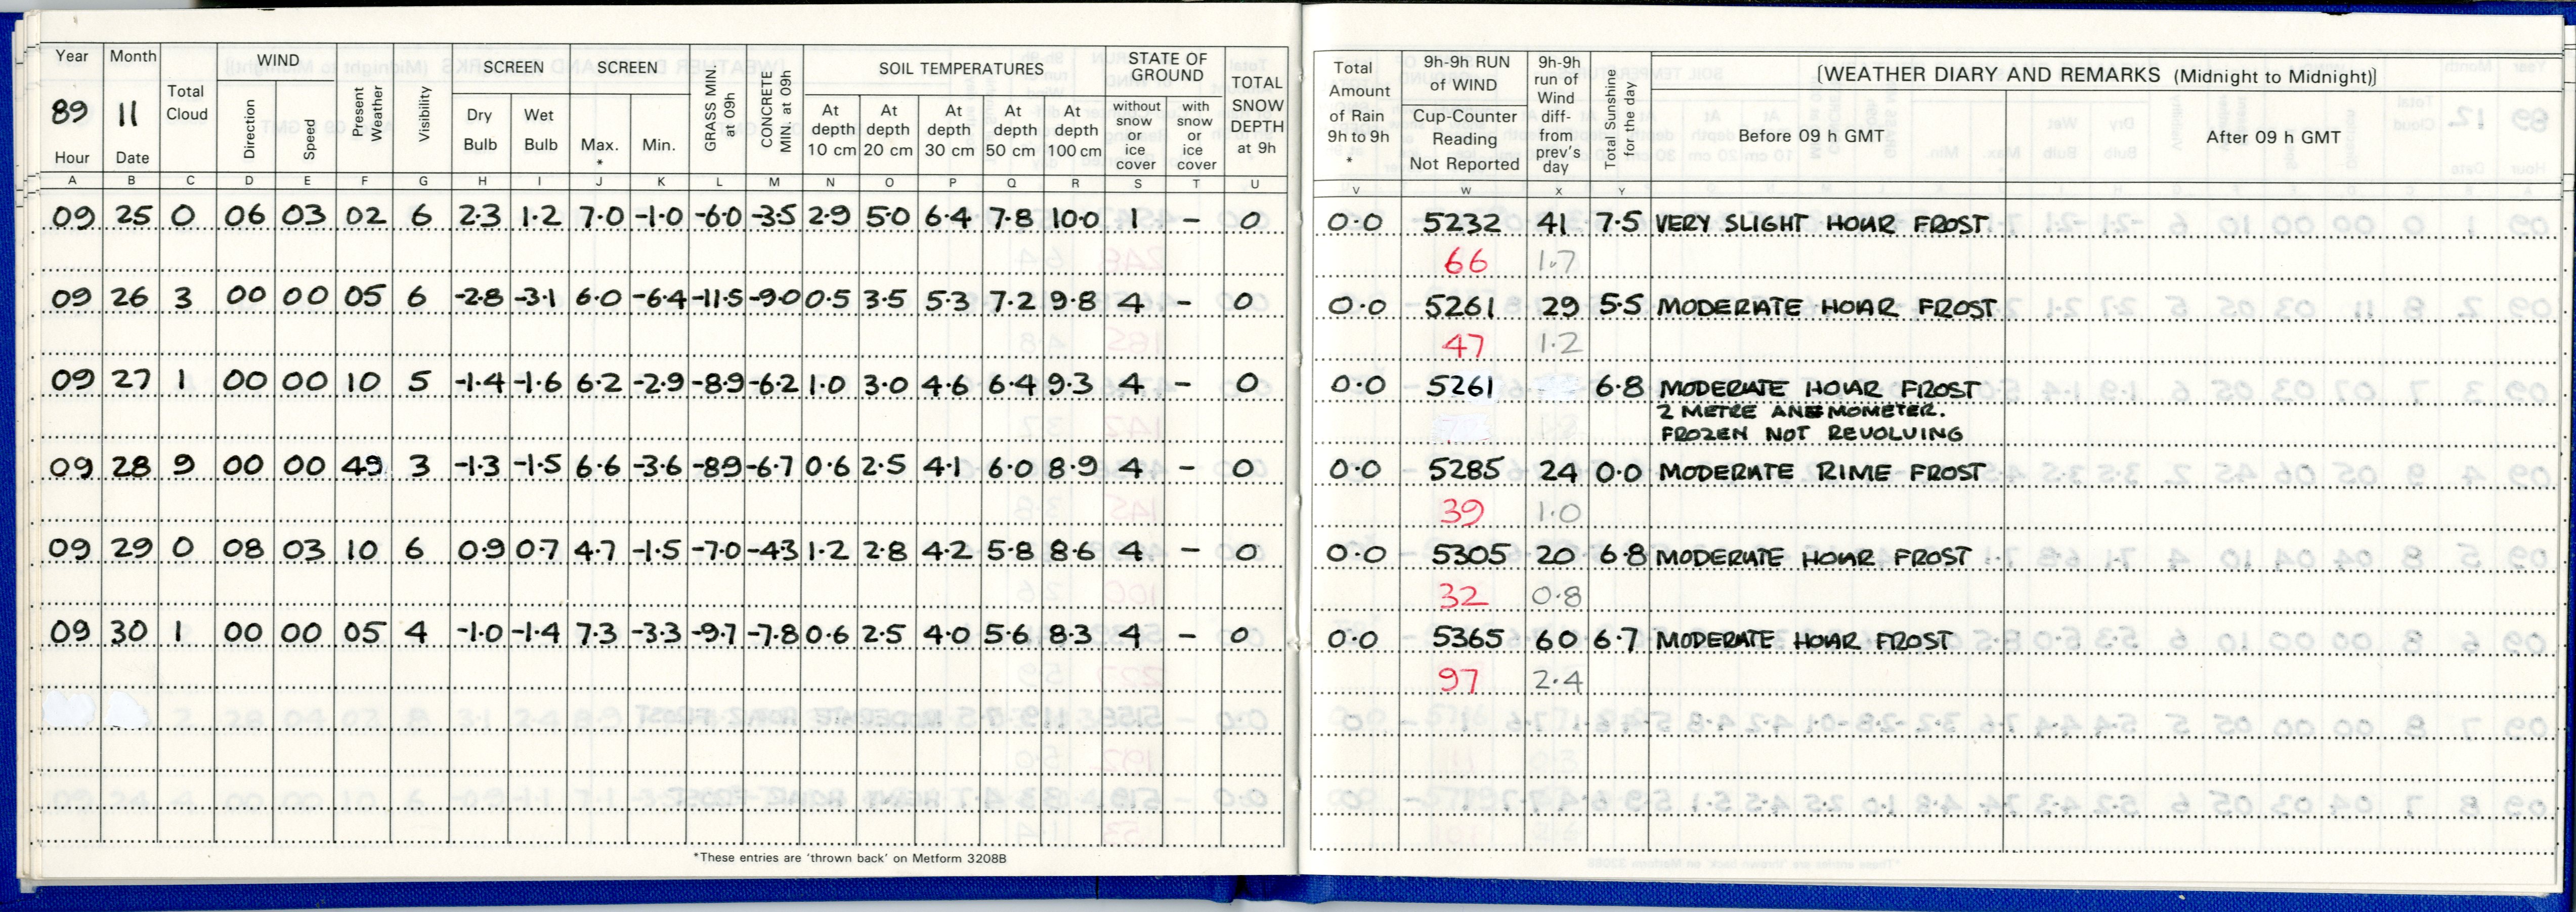 Year Month WIND SCREEN SCREEN SOIL TEMPERATURES STATE OF GROUND
89 11 Total Cloud Direction Speed Present Weather Visibility Dry Bulb Wet Bulb Max. * Min. GRASS MIN. at 09h CONCRETE MIN. at 09h At depth 10 cm At depth 20 cm At depth 30 cm At depth 50 cm At depth 100 cm without snow or ice cover with snow or ice cover TOTAL SNOW DEPTH at 9h
Hour Date
A B C D E F G H I J K L M N O P Q R S T U
09 25 0 06 03 02 6 2.3 1.2 7.0 -1.0 -6.0 -3.5 2.9 5.0 6.4 7.8 10.0 1 - 0
09 26 3 00 00 05 6 -2.8 -3.1 6.0 -6.4 -11.5 -9.0 0.5 3.5 5.3 7.2 9.8 4 - 0
09 27 1 00 00 10 5 -1.4 -1.6 6.2 -2.9 -8.9 -6.2 1.0 3.0 4.6 6.4 9.3 4 - 0
09 28 9 00 00 49 3 -1.3 -1.5 6.6 -3.6 -8.9 -6.7 0.6 2.5 4.1 6.0 8.9 4 - 0
09 29 0 08 03 10 6 0.9 0.7 4.7 -1.5 -7.0 -4.3 1.2 2.8 4.2 5.8 8.6 4 - 0
09 30 1 00 00 05 4 -1.0 -1.4 7.3 -3.3 -9.7 -7.8 0.6 2.5 4.0 5.6 8.3 4 - 0
*These entries are 'thrown back' on Metform 3208B
Total Amount of Rain 9h to 9h * 9h-9h RUN of WIND Cup-Counter Reading Not Reported 9h-9h run of Wind diff- from prev's day Total Sunshine for the day [WEATHER DIARY AND REMARKS (Midnight to Midnight)]
Before 09 h GMT After 09 h GMT
V W X Y
0.0 5232 41 7.5 VERY SLIGHT HOAR FROST
66 1.7
0.0 5261 29 5.5 MODERATE HOAR FROST
47 1.2
0.0 5261 6.8 MODERATE HOAR FROST
2 METRE ANEMOMETER.
FROZEN NOT REVOLVING
0.0 5285 24 0.0 MODERATE RIME FROST
39 1.0
0.0 5305 20 6.8 MODERATE HOAR FROST
32 0.8
0.0 5365 60 6.7 MODERATE HOAR FROST
97 2.4